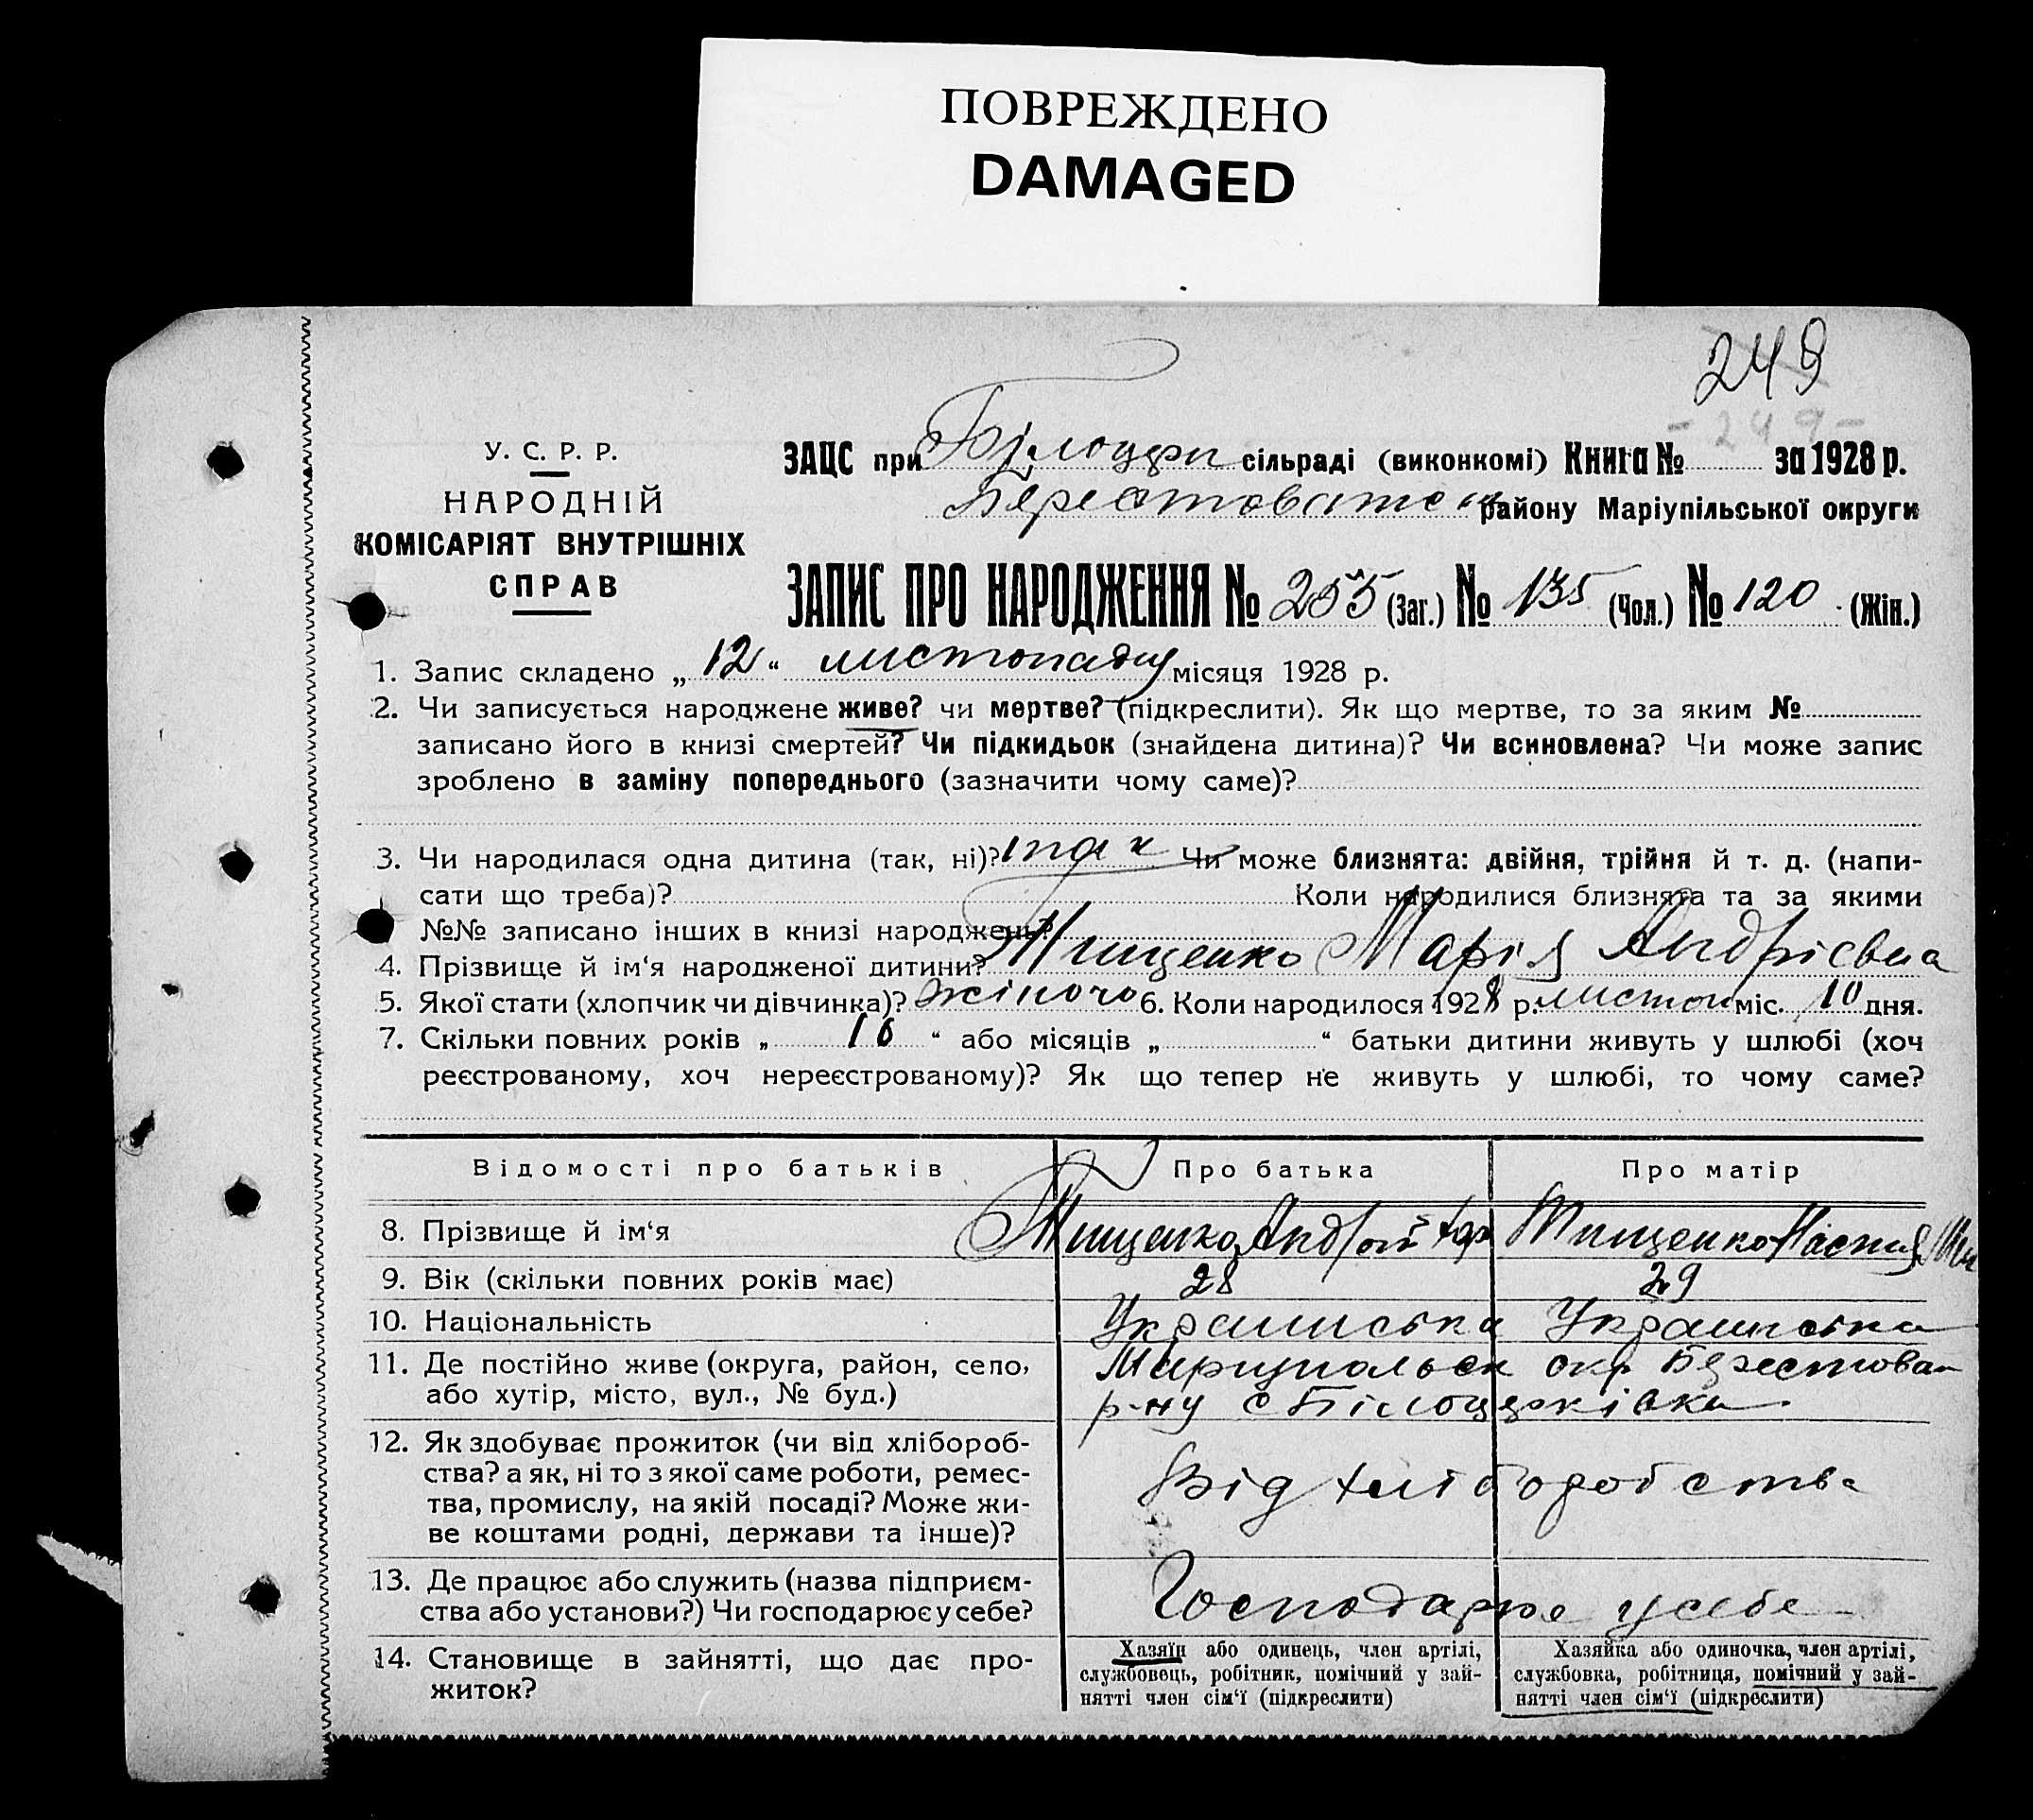 ПОВРЕЖДЕНО
DAMAGED
249
- 249 -
У. С. Р. Р.
НАРОДНІЙ
КОМІСАРІЯТ ВНУТРІШНІХ
СПРАВ
ЗАЦС при Білоцерк сільраді (виконкомі) Книга № за 1928 р.
району Маріупільської округи
ЗАПИС ПРО НАРОДЖЕННЯ № 255 (Заг.) № 135 (Чол.) № 120 (Жін.)
1. Запис складено „ 12 “ листопада місяця 1928 р.
2. Чи записується народжене живе? чи мертве? (підкреслити). Як що мертве, то за яким №
записано його в книзі смертей? Чи підкидьок (знайдена дитина)? Чи всиновлена? Чи може запис
зроблено в заміну попереднього (зазначити чому саме)?
3. Чи народилася одна дитина (так, ні)? так Чи може близнята: двійня, трійня й т. д. (напи-
сати що треба)? Коли народилися близнята та за якими
№№ записано інших в книзі народжень?
4. Прізвище й ім‘я народженої дитини? Тищенко Марія Андрієвна
5. Якої стати (хлопчик чи дівчинка)? жіночо 6. Коли народилося 1928 р. листоп міс. 10 дня.
7. Скільки повних років „ 10 “ або місяців „ “ батьки дитини живуть у шлюбі (хоч
реєстрованому, хоч нереєстрованому)? Як що тепер не живуть у шлюбі, то чому саме?
Відомості про батьків Про батька Про матір
8. Прізвище й ім‘я Тищенко Андрій Тищенко Настя
9. Вік (скільки повних років має) 28 29
10. Національність Украинська Украинська
11. Де постійно живе (округа, район, село, Мариупольск окр Берестован
або хутір, місто, вул., № буд.) р-ну с Білоцерківка
12. Як здобуває прожиток (чи від хлібороб-
ства? а як, ні то з якої саме роботи, ремес- Від хліборобства
тва, промислу, на якій посаді? Може жи-
ве коштами родні, держави та інше)?
13. Де працює або служить (назва підприєм- Господарює у себе
ства або установи?) Чи господарює у себе?
14. Становище в зайнятті, що дає про-
житок?
Хазяїн або одинець, член артілі,
службовець, робітник, помічний у зай-
нятті член сім‘ї (підкреслити)
Хазяйка або одиночка, член артілі,
службовка, робітниця, помічний у зай-
нятті член сім‘ї (підкреслити)